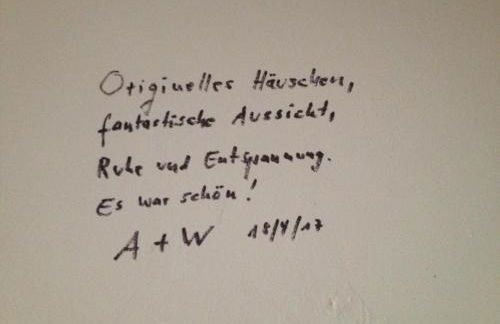 Originelles Häuschen,
fantastische Aussicht,
Ruhe und Entspannung.
Es war schön!
A + W 18/4/17